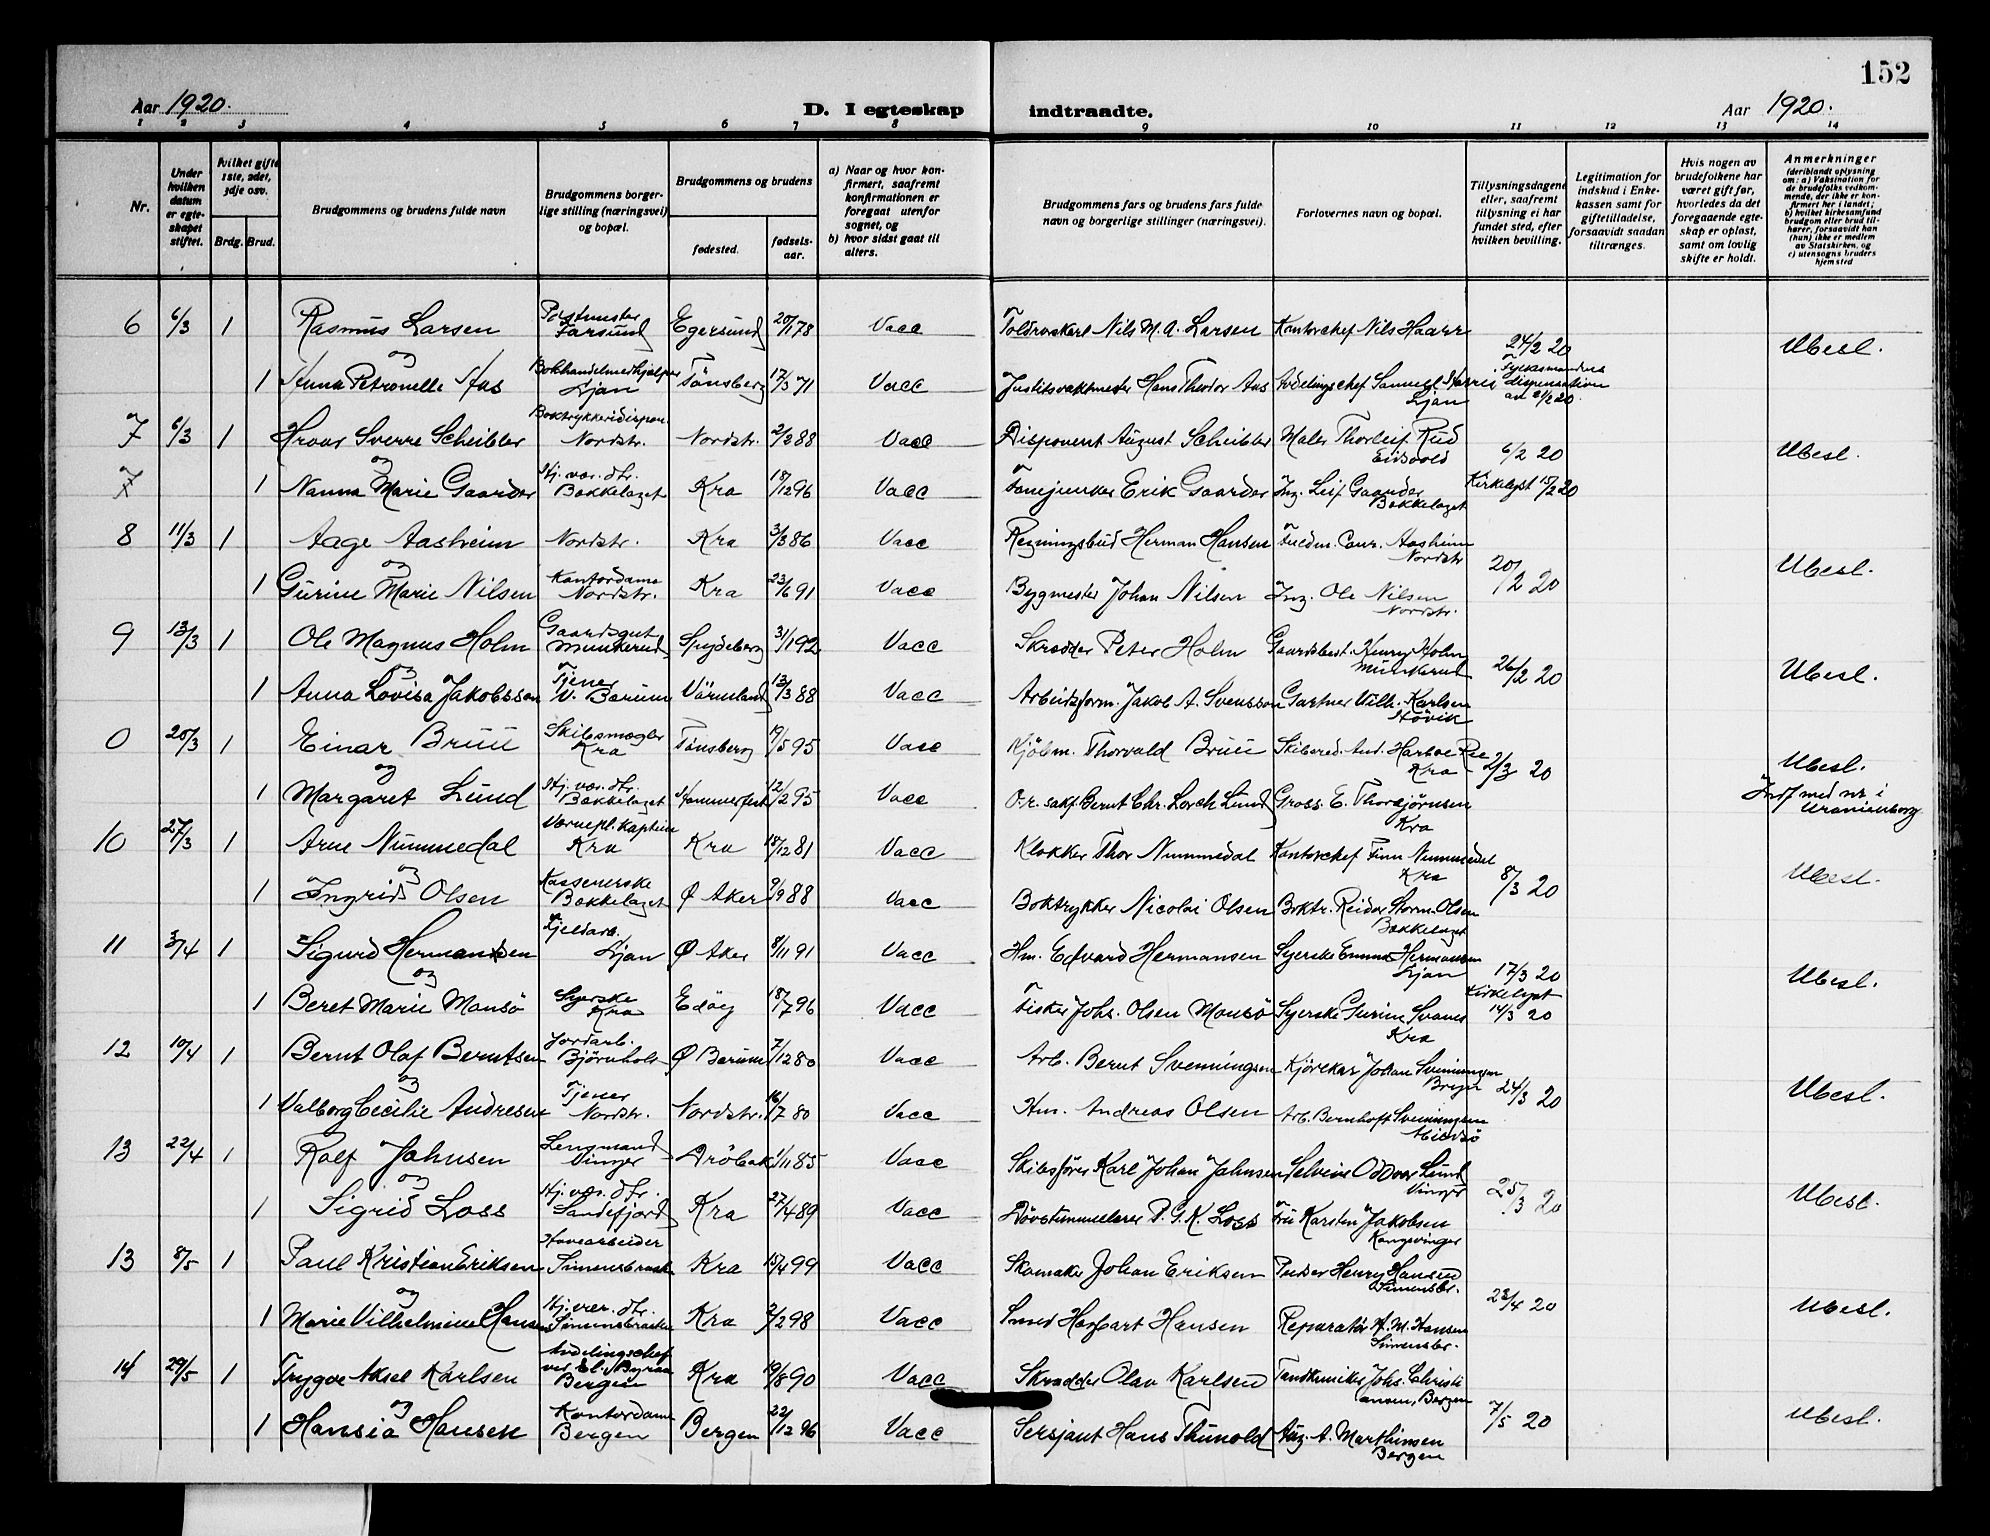 152
Aar 1920. D. I egteskap indtraadte. Aar 1920.
1 2 3 4 5 6 7 8 9 10 11 12 13 14
Nr.
Under hvilken datum er egteskapet stiftet.
Hvilket gifte 1ste, 2det, 3dje osv.
Brdg. Brud.
Brudgommens og brudens fulde navn
Brudgommens borgerlige stilling (næringsvei) og bopæl.
Brudgommens og brudens
fødested. fødselsaar.
a) Naar og hvor konfirmert, saafremt konfirmationen er foregaat utenfor sognet, og
b) hvor sidst gaat til alters.
Brudgommens fars og brudens fars fulde navn og borgerlige stillinger (næringsvei).
Forlovernes navn og bopæl.
Tillysningsdagene eller, saafremt tillysning ei har fundet sted, efter hvilken bevilling.
Legitimation for indskud i Enkekassen samt for giftetilladelse, forsaavidt saadan tiltrænges.
Hvis nogen av brudefolkene har været gift før, hvorledes da det foregaaende egteskap er opløst, samt om lovlig skifte er holdt.
Anmerkninger (deriblandt oplysning om: a) Vaksination for de brudefolks vedkommende, der ikke er konfirmert her i landet; b) hvilket kirkesamfund brudgom eller brud tilhører, forsaavidt han (hun) ikke er medlem av Statskirken, og c) utensogns bruders hjemsted
6 6/3 1 Rasmus Larsen Postmester Farsund Egersund 20/1 78 Vacc Nils M. A. Larsen Kontorchef Nils Haarr 24/2 20 Ubesl.
og
1 Anna Petronelle Aas Ljan Tönsberg 17/3 71 Vacc Hans Theodor Aas Ljan
7 6/3 1 Hroar Sverre Scheibler Nordstr. Nordstr. 2/2 88 Vacc Disponent August Scheibler Maler Thorleif Rud Eidsvold 6/2 20 Ubesl.
og
1 Nanna Marie Gaarder Hj. vær. dtr. Bækkelaget Kra 18/12 96 Vacc Fanejunker Erik Gaarder Ing. Leif Gaarder Bækkelaget Kirkelyst 15/2 20
8 11/3 1 Aage Aasheim Nordstr. Kra 3/3 86 Vacc Regningsbud Herman Hansen Conr. Aasheim Nordstr 20/2 20 Ubesl.
og
1 Gurine Marie Nilsen Kontordame Nordstr. Kra 23/6 91 Vacc Bygmester Johan Nilsen Ing. Ole Nilsen Nordstr.
9 13/3 1 Ole Magnus Holm Gaardsgut Munkerud Spydeberg 31/1 92 Vacc Skrædder Peter Holm Gaardbest. Henry Holm Munkerud 26/2 20 Ubesl.
og
1 Anna Lovisa Jakobsson Tjener V. Bærum Värmland 13/3 88 Vacc Arbeidsform. Jakob A. Svensson Gartner Vilh. Karlsen Hövik
0 20/3 1 Einar Bruu Skibsmægler Kra Tönsberg 19/5 95 Vacc Kjöbm. Thorvald Bruu Kra 2/3 20 Ubesl.
og
1 Margaret Lund Hj. vær. dtr. Bækkelaget Hammerfest 12/2 95 Vacc O.r. sakf. Bernt Chr. Lorch Lund Gross. E. Thorbjörnsen Kra Indf med nr i Uranienborg
10 27/3 1 Arne Nummedal Vernepl. kaptein Kra Kra 18/12 81 Vacc Klokker Thor Nummedal Kontorchef Finn Nummedal Kra 8/3 20 Ubesl.
og
1 Ingrid Olsen Kassererske Bækkelaget Ø Aker 9/9 88 Vacc Boktrykker Nicolai Olsen Boktr. Reidar Storm-Olsen Bækkelaget
11 3/4 1 Sigurd Hermansen Fjeldarb. Ljan Ø Aker 8/11 91 Vacc Hm. Edvard Hermansen Syerske Emma Hermansen Ljan 17/3 20 Ubesl.
og
1 Beret Marie Monsö Syerske Kra Edöy 18/7 96 Vacc Fisker Johs. Olsen Monsö Syerske Gurine Svanes Kra Kirkelyst 14/3 20
12 10/4 1 Bernt Olaf Berntsen Jordarb. Björnholt Ø Bærum 7/12 80 Vacc Arb. Bernt Svenningsen Kjörekar Johan Svenningsen 24/3 20 Ubesl.
og
1 Valborg Cecilie Andresen Tjener Nordstr. Nordstr. 16/7 80 Vacc Hm. Andreas Olsen Arb. Bernhoft Svenningsen
13 22/4 1 Rolf Jahnsen Lensmand Vinger Dröbak 1/11 85 Vacc Skibsförer Karl Johan Jahnsen Oddvar Lund Vinger 25/3 20 Ubesl.
og
1 Sigrid Loss Hj. vær. dtr. Sandefjord Kra 27/4 89 Vacc Dövstummelærer P. G. K. Loss Fru Karsten Jakobsen Kongsvinger
13 8/5 1 Paul Kristian Eriksen Havearbeider Simensbraaten Kra 15/4 99 Vacc Skomaker Johan Eriksen Pudser Henry Hansen Simensbr. 23/4 20 Ubesl.
og
1 Marie Vilhelmine Hansen Hj. vær. dtr. Simensbraaten Kra 2/2 98 Vacc Smed Hagbart Hansen Reparatör H. M. Hansen Simensbr.
14 29/5 1 Trygve Aksel Karlsen Avdelingschef ved El. Byraa Bergen Kra 19/8 90 Vacc Skrædder Olav Karlsen Tandtekniker Johs. Christiansen, Bergen 7/5 20 Ubesl.
og
1 Hansia Hansen Kontordame Bergen Bergen 22/12 96 Vacc Sersjant Hans Thunold Aug. A. Marthinsen Bergen